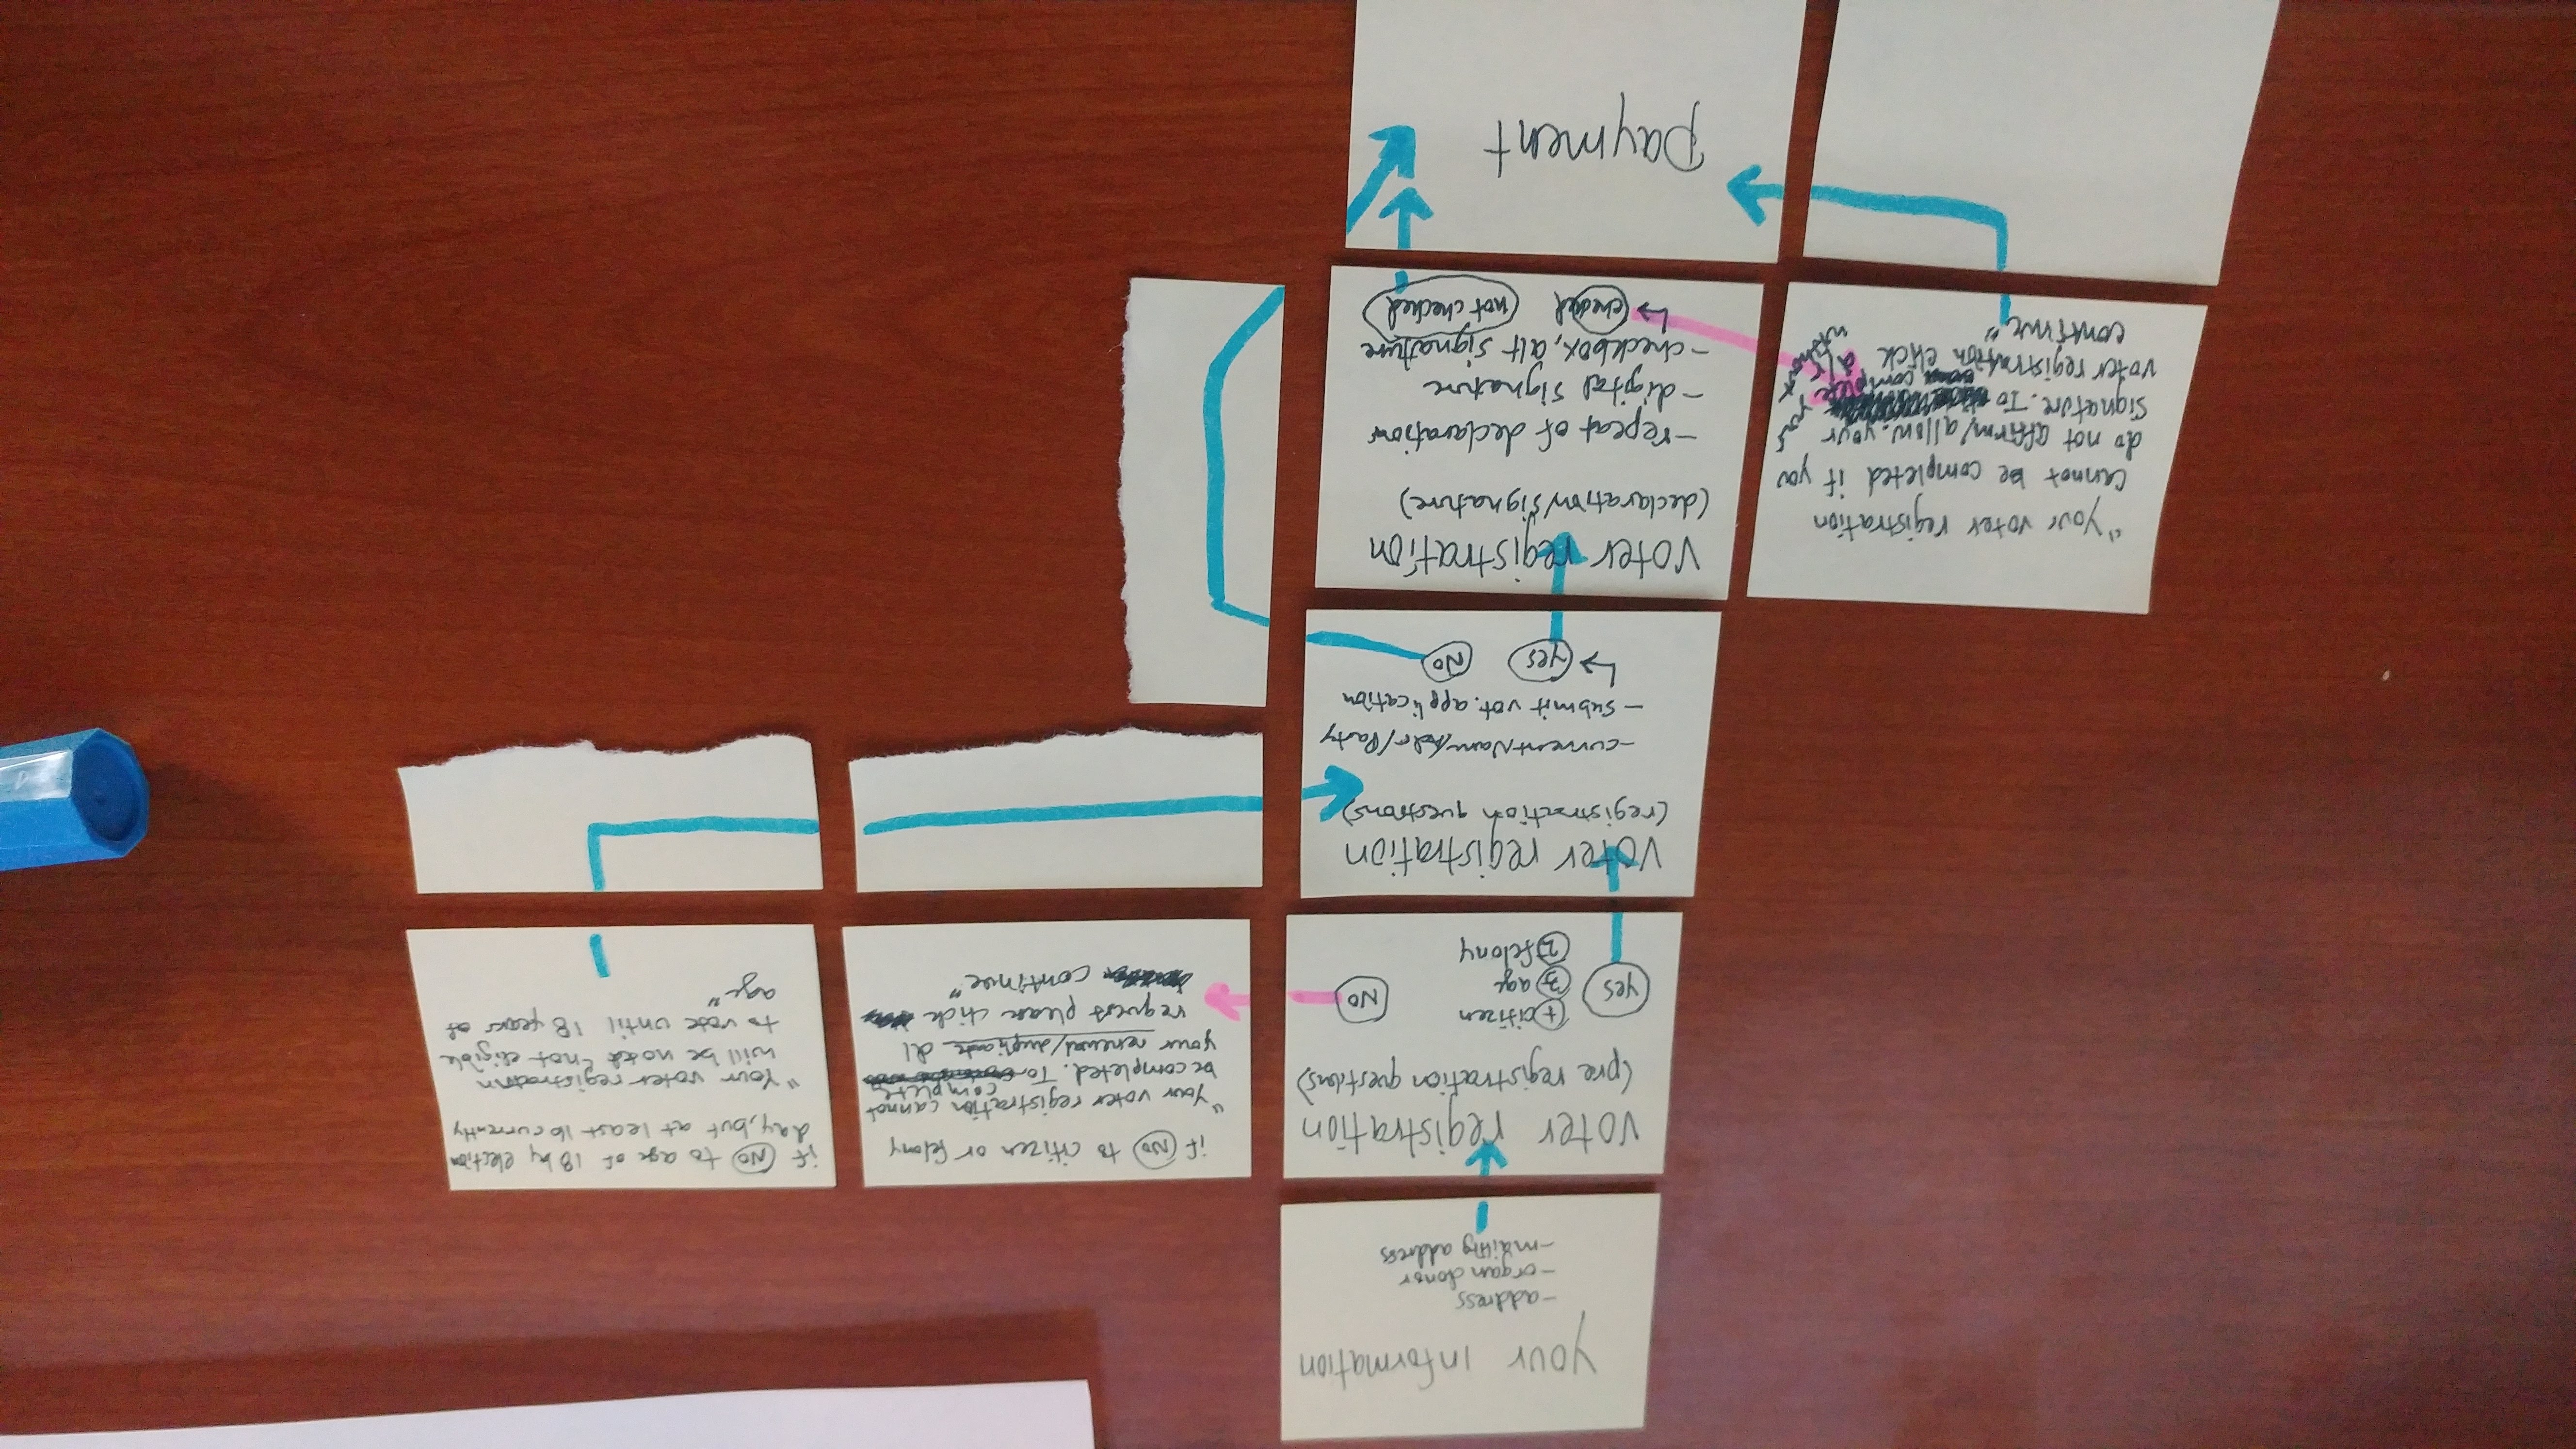 your information
-address
-organ donor
-mailing address
voter registration
(pre registration questions)
yes
1 citizen
3 age
2 felony
NO
if NO to citizen or felony
"Your voter registration cannot
be completed. To complete
your renewal/duplicate dl
request please click
continue"
if NO to age of 18 by election
day, but at least 16 currently
"Your voter registration
will be noted "not eligible
to vote until 18 years of
age"
Voter registration
(registration questions)
-current Name/Adr/Party
- submit vot. application
yes NO
"Your voter registration
cannot be completed if you
do not affirm/allow your
signature. To
complete your
voter registration click
d/r without
continue"
Voter registration
(declaration/signature)
-repeat of declarations
-digital signature
-checkbox, alt signature
checked not checked
payment